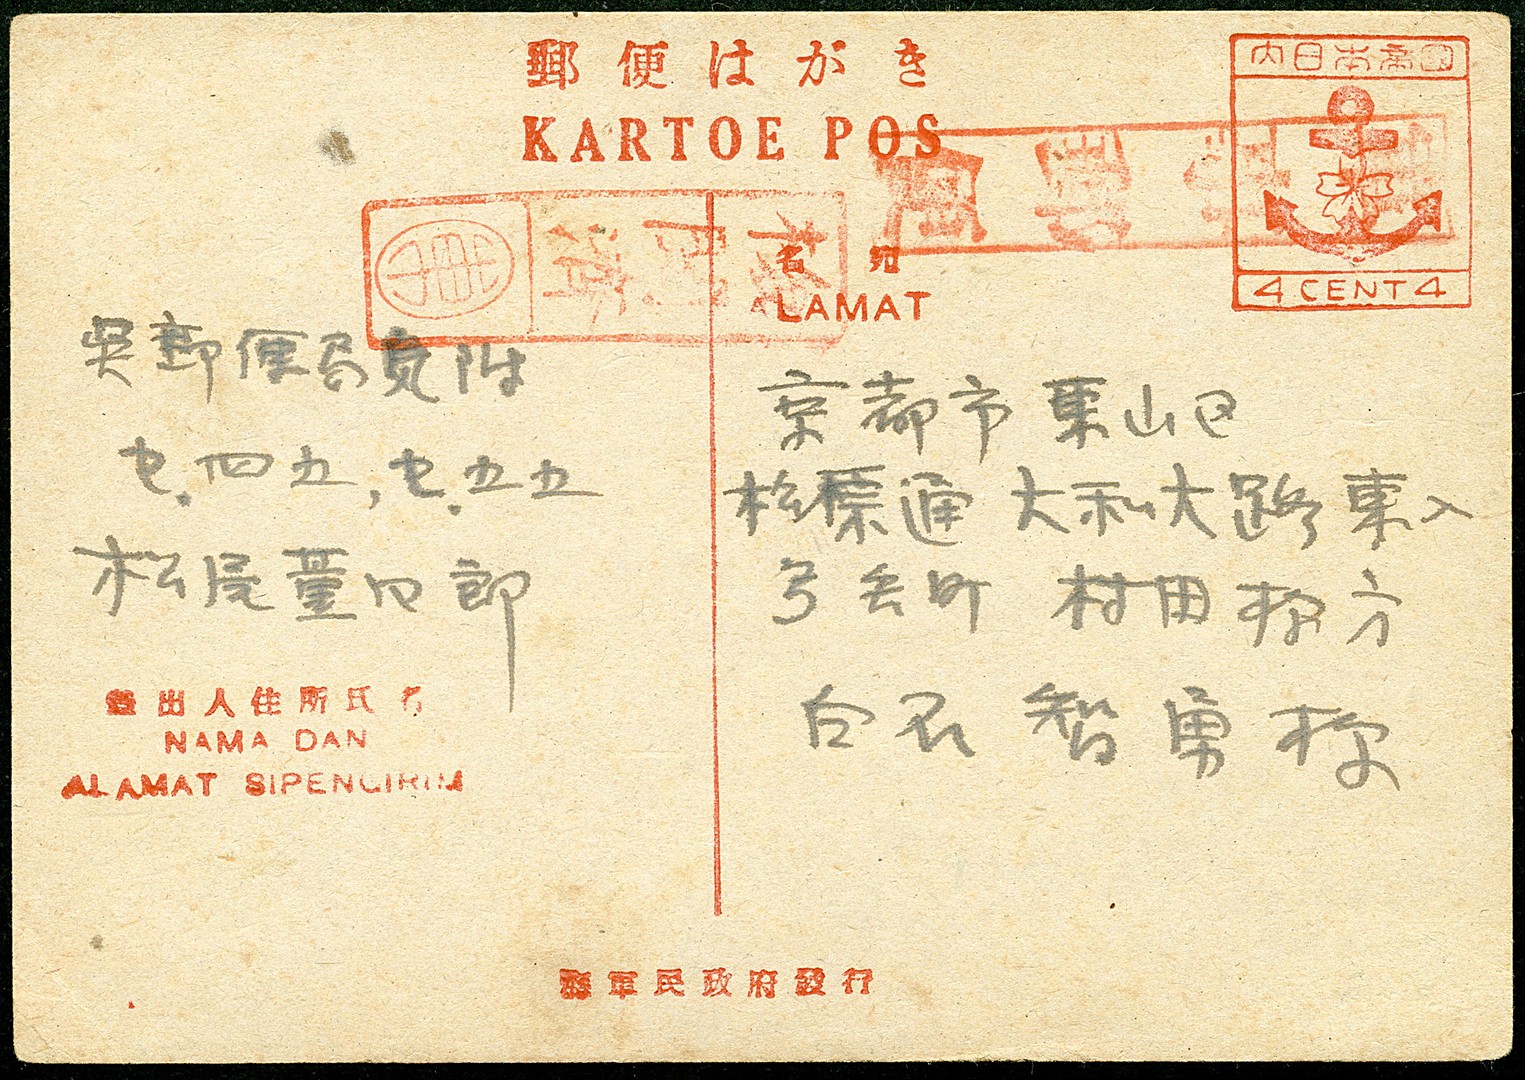 郵便はがき
KARTOE POS
内日本帝國
4 CENT 4
軍事郵便
検閲済
名宛
ALAMAT
京都市東山区
松原通大和大路東入
弓矢町 村田様方
白石智勇様
呉郵便局気附
セ.四五,セ.五五
松尾董四郎
差出人住所氏名
NAMA DAN
ALAMAT SIPENGIRIM
海軍民政府發行